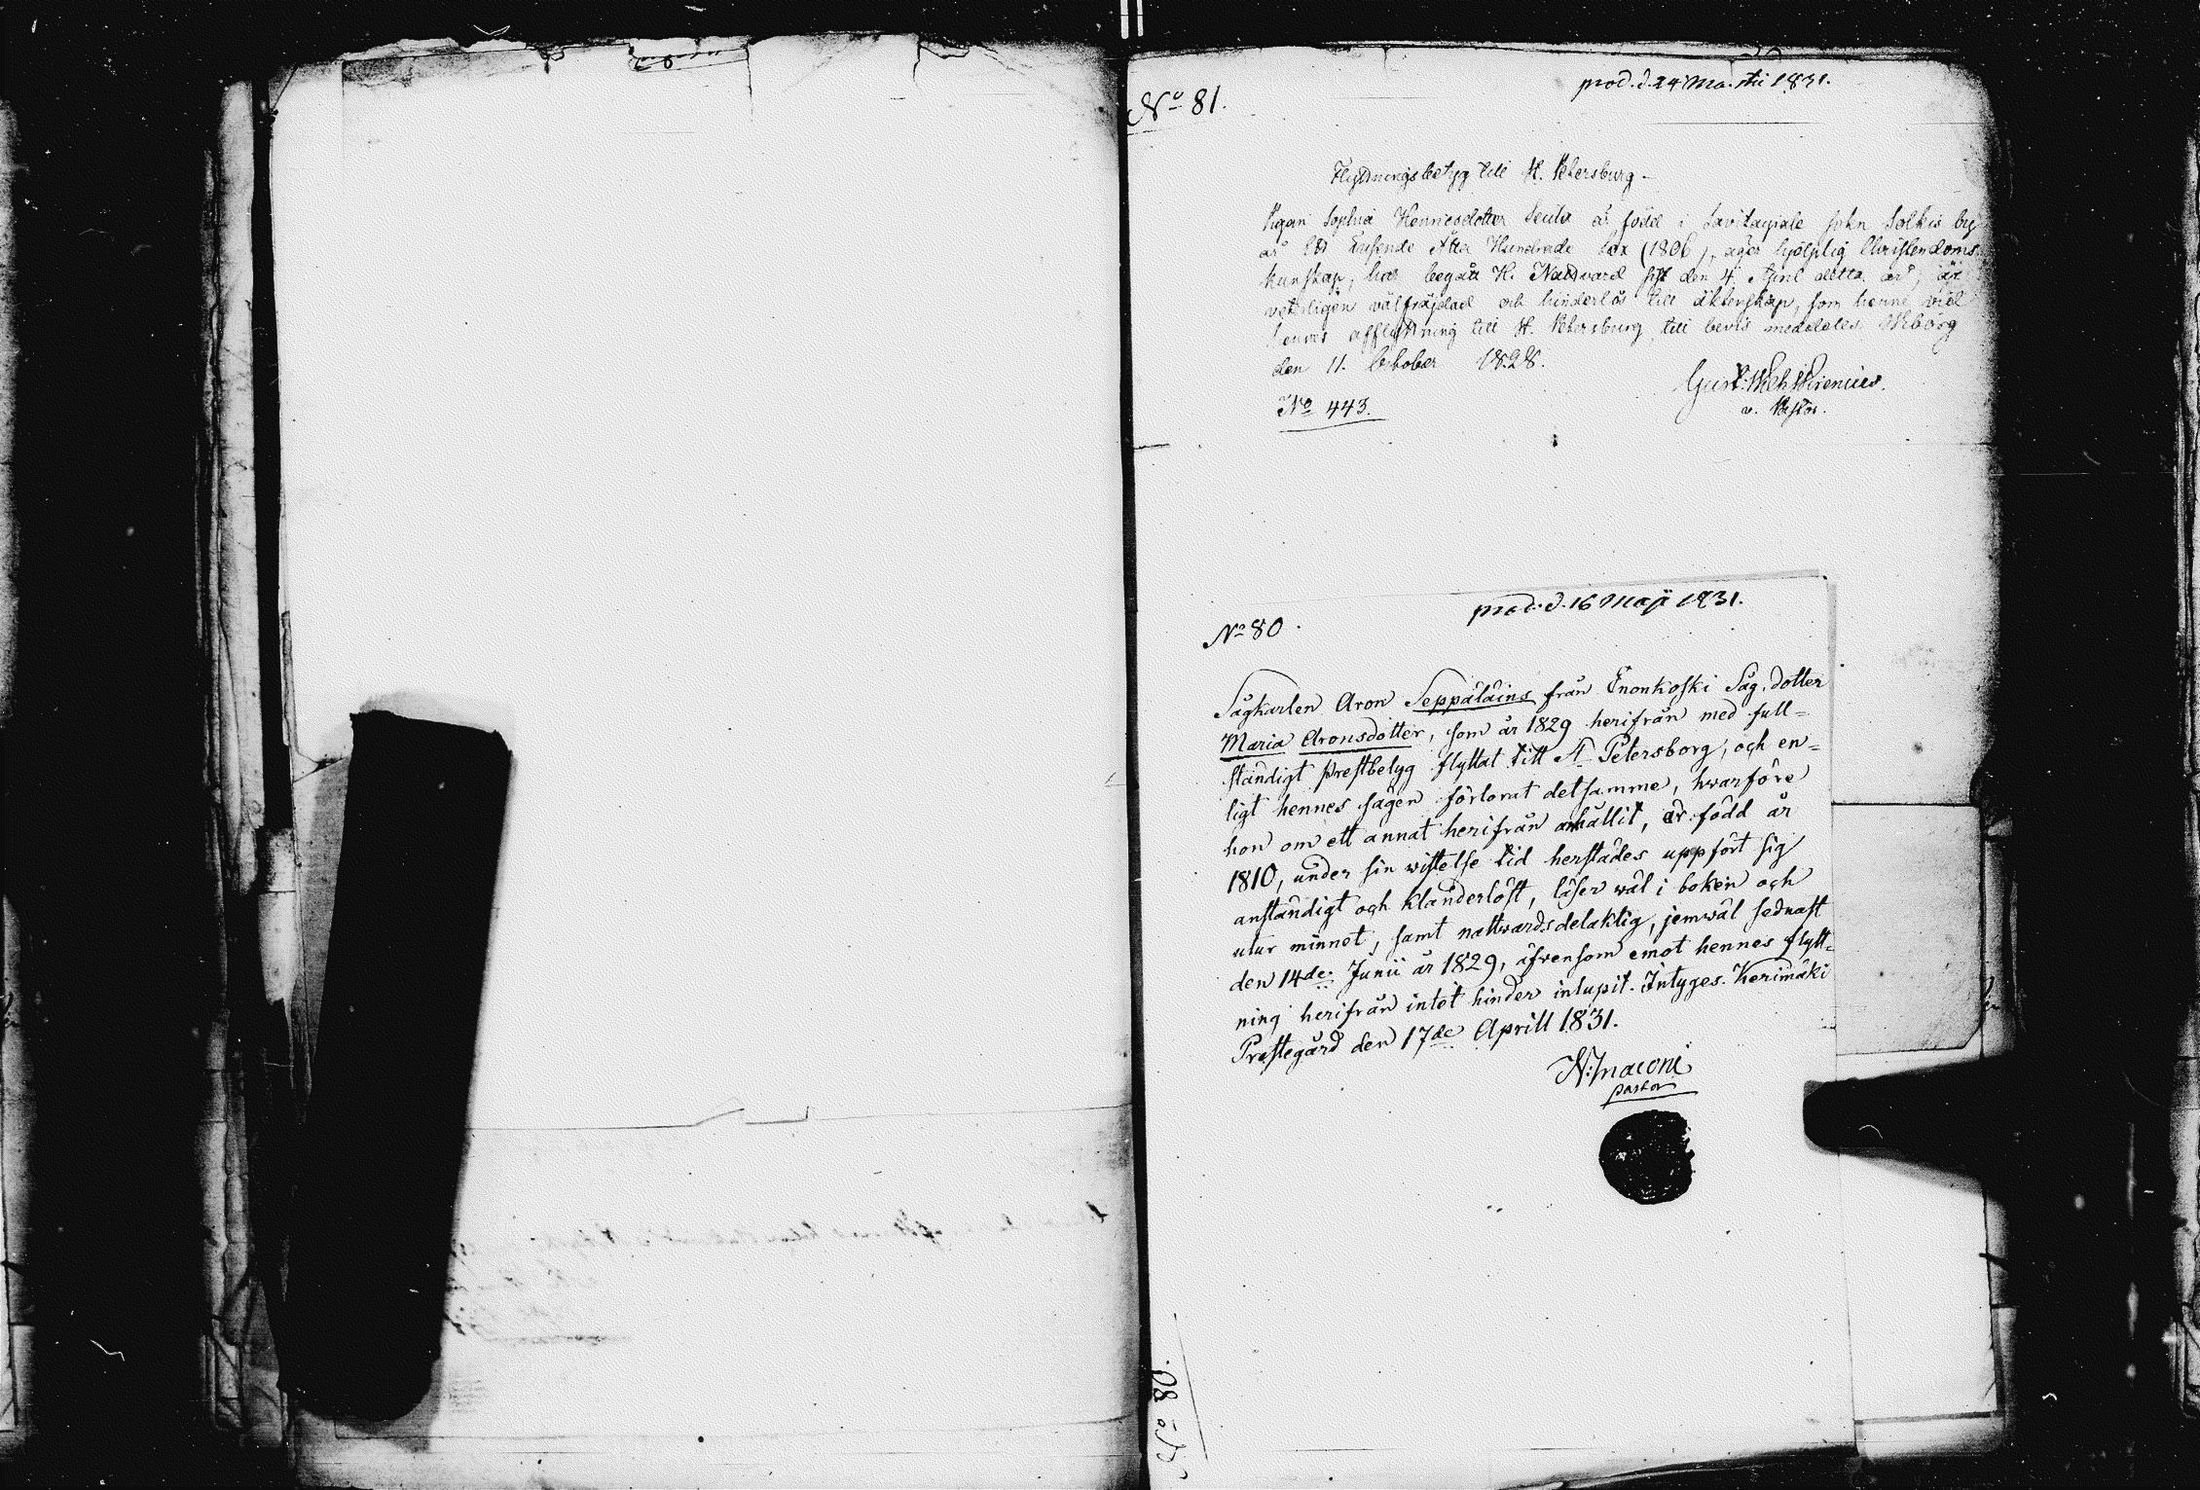 prod. d. 24 Martii 1831.
No 81.
Flyttningsbetyg till St. Petersburg.
Pigan Sophia Henricsdotter är född i Savitaipale Sokn Solkis by
år Ett Tusende Åtta Hundrade Sex (1806), äger hjelplig Christendoms
kunskap, har begått H. Nattward sist den 4 April detta år, är
veterligen välfräjdad och hinderlös till äktenskap, som henne vid
dennes afflyttning till St. Petersburg till bevis meddeles. Wiborg
den 11. October 1828.
No 443.
v. Pastor.
prod. d. 16 Maji 1831.
No 80.
Sågkarlen Aron Seppäläins från Enonkoski Såg, dotter
Maria Aronsdotter, som år 1829 herifrån med full=
ständigt prestbetyg flyttat till St Petersborg, och en=
ligt hennes sägen förlorat detsamme, hwarföre
hon om ett annat herifrån anhållit, är född år
1810, under sin wistelse tid herstädes uppfört sig
anständigt och klanderlöst, läser wäl i boken och
utur minnet, samt nattwardsdelaktig, jemwäl sednast
den 14de Junii år 1829, äfvensom emot hennes flytt=
ning herifrån intet hinder inlupit. Intyges. Kerimäki
Prestegård den 17de Aprill 1831.
pastor
No 80.